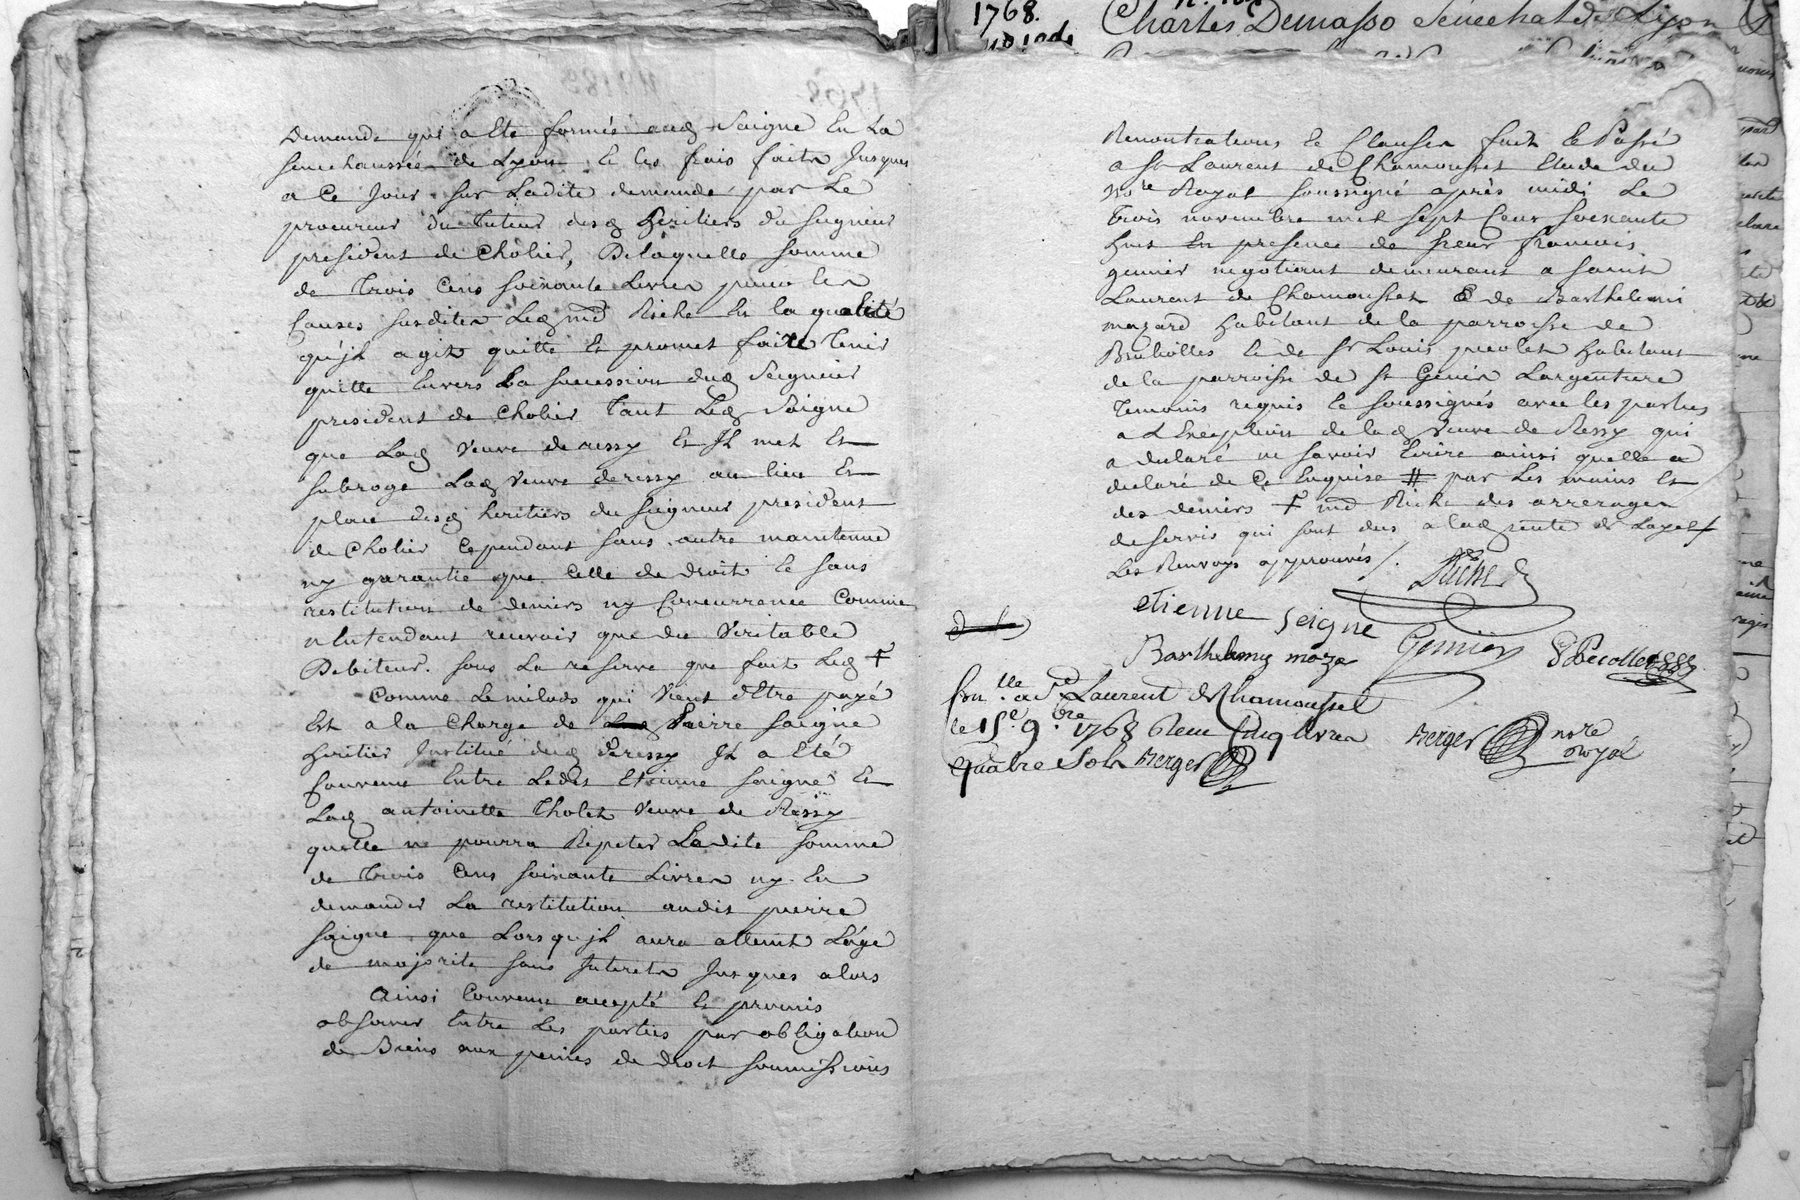 Demande qui a Ete formée aud Saigne En La
Senechaussée de Lyon, & les frais faits Jusques
a Ce Jour sur Ladite demande par Le
procureur du tuteur desd heritiers du Seigneur
president de Cholier, De laquelle somme
de trois Cens soixante Livres pour les
Causes susdites Led md Riche En la qualité
qu'jl agit quitte Et promet faire tenir
quitte Envers La succession dud Seigneur
president de Cholier tant Led Saigne
que Lad Veuve deressy Et Jl met Et
subroge Lad Veuve deressy au lieu Et
place desd heritiers du Seigneur president
de Cholier Cependant sans autre maintenue
ny garantie que Celle de droit & sans
restitution de deniers ny Concurrance Comme
n'Entendant recevoir que du Veritable
Debiteur. sous La reserve que fait Led †
Comme Le milods qui Vient d'Etre payé
Est a la Charge de Pierre Saigne
heritier Institué dud Deressy Jl a Eté
Convenu Entre Ledit Etienne Saigne Et
Lad antoinette Tholet Veuve de Ressy
quelle ne pourra Repeter Ladite somme
de trois Cens soixante Livres ny En
demander La restitution audit pierre
Saigne que Lorsqu'jl aura atteint L'age
de majorité sans Interets Jusques alors
Ainsi Convenu accepté & promis
observer Entre Les parties par obligation
de Biens aux peines de droit soumissions
1768.
Charles Demasso Senechal de Lyon
Renontiations & Clauses fait & Passé
a St Laurent de Chamousset Etude du
nore Royal soussigné après midi Le
trois novembre mil sept Cens soixante
huit En presence de sieur francois
genier negotiant demeurant a saint
Laurent de Chamousset & de Barthelemi
mazard habitant de la parroisse de
Brulliolles & de sr Louis pecolet habitant
de la parroisse de st Genis Largentiere
temoins requis & soussignés avec les parties
a L'Exception de lad Veuve de Ressy qui
a declaré ne savoir Ecrire ainsi quelle a
declaré de Ce Enquise # par Les mains Et
des deniers † md Riche des arrerages
de servis qui sont dus a lad rente de Layel †
Les Renvoys approuvés /.
Riche
etienne seigne
Barthelemy maza Genier Pecollet
Con.lle a St Laurent de Chamousset
le 15e 9bre 1768 Recu Cinq Livres
Quatre Sols Berger
Berger nore
royal